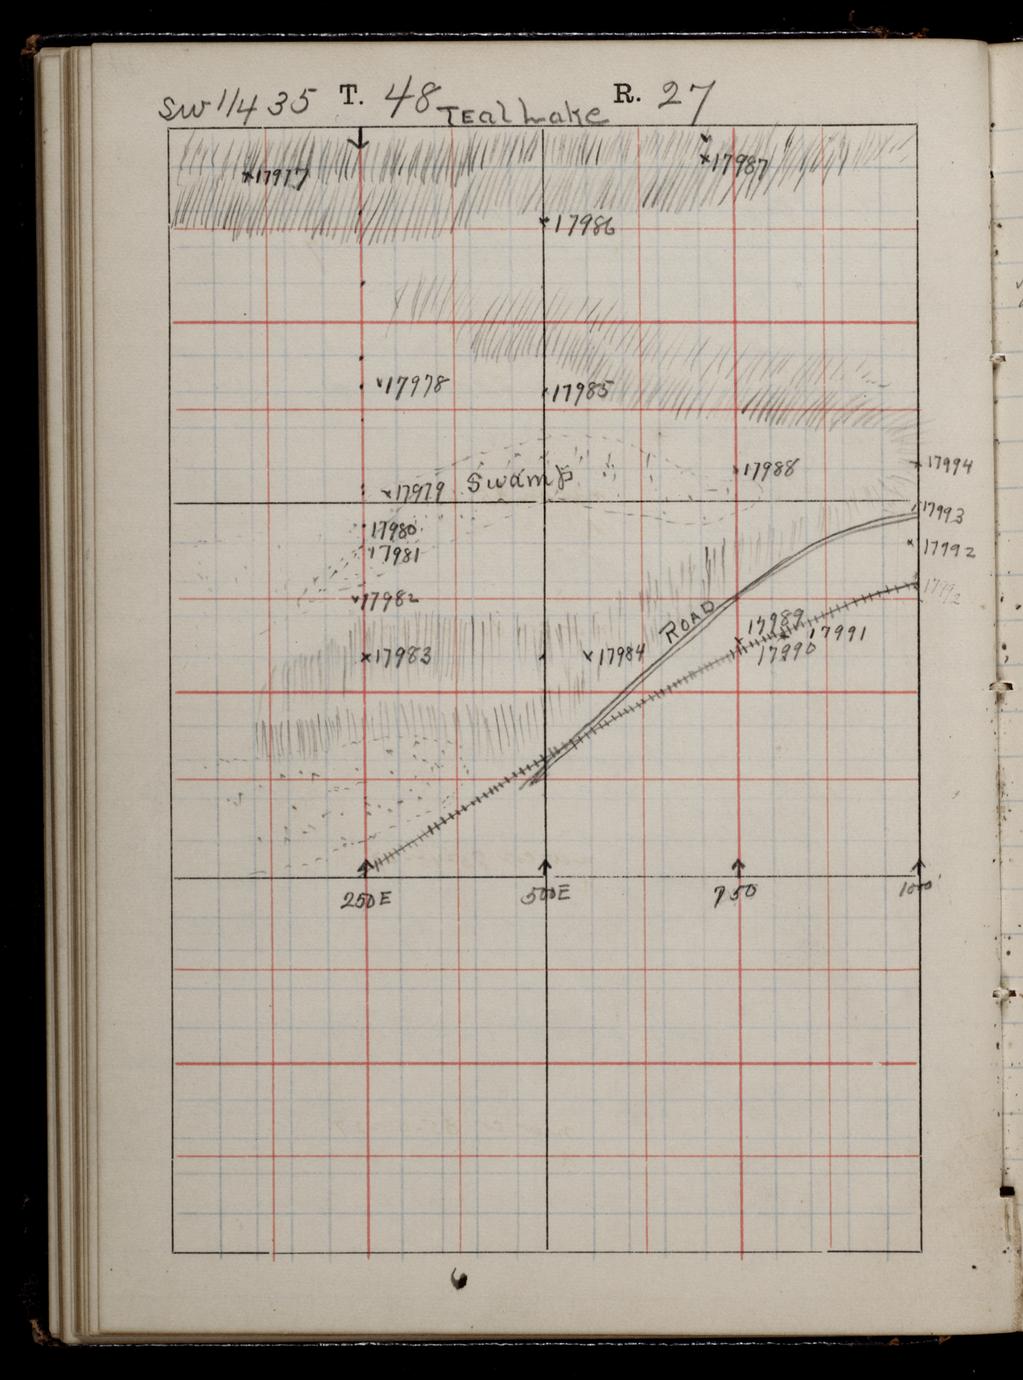 SW 1/4 35 T. 48 R. 27
Teal Lake
17977
17987
17986
17978
17985
17994
17988
Swamp
17979
17993
17980
17992
17981
17992
17982
ROAD
17989
17991
17983
17984
17990
250E
500E
750
1000'
6